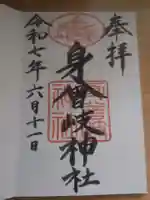 奉拝
身曾岐神社
令和七年六月十一日